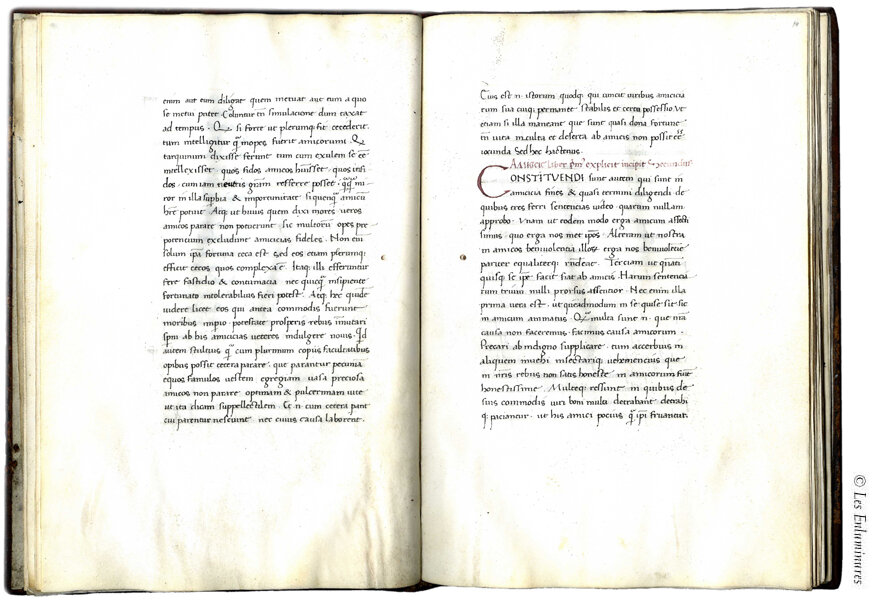 enim aut eum diligat quem metuat aut eum a quo
se metui putet Coluntur tñ simulatione dum taxat
ad tempus . Q̃ si forte ut plerumq̃ fit ceciderit.
tum intelligitur q̃ inopes fuerit amicorum . Q̃
tarquinum dixisse ferunt tum cum exulem se eẽ
intellexisset quos fidos amicos huisset . quos infi
dos . cum iam neutris gr̃am refferre posset . q̃q̃ mi
ror in illa supbia & importunitate si quenq̃ amicũ
hr̃e potuit . Atq̃ ut huius quem dixi mores ueros
amicos parare non potuerunt sic multorũ opes pre
potentium excludunt amicicias fideles . Non eni
solum ip̃a fortuna ceca est sed eos etiam plerumq̃
efficit cecos quos complexa ẽ . Itaq̃ illi efferuntur
fere fastidio & contumacia nec quicq̃ insipiente
fortunato intolerabilius fieri potest . Atq̃ hoc quidẽ
uidere licet eos qui antea commodis fuerunt
moribus impio potestate prosperis rebus inmutari
sp̃ni ab his amicicias ueteres indulgere nouis . Q̃d
autem stultius q̃ cum plurimum copiis facultatibus
opibus possit cetera parare . que parantur pecunia
equos famulos uestem egregiam uasa preciosa
amicos non parare optimam & pulcerrimam uite
ut ita dicam suppellectilem . Et n̄ cum cetera parãt
cui parentur nesciunt . nec cuius causa laborent.
Cuius est n̄ . istorum quodq̃ qui uincit uiribus amicicia
rum sua cuiq̃ permanet stabilis et certa possessio . Ut
etiam si illa maneant que sunt quasi dona fortune
tñ uita inculta et deserta ab amicis non possit eẽ
iocunda Sed hec hactenus.
DE AMICICIA liber pm̃ explicit incipit Secundus
CONSTITUENDI sunt autem qui sunt in
amicicia fines & quasi termini diligendi de
quibus tres ferri sentencias uideo . quarum nullam
approbo . Unam ut eodem modo erga amicum affecti
simus . quo erga nos met ip̃os . Alteram ut nostra
in amicos beniuolentia illoȝ erga nos beniuolentie
pariter equaliterq̃ rñdeat . Terciam ut quãti
quisq̃ se ip̃e facit fiat ab amicis . Harum sentencia
rum trium nulli prorsus assentior . Nec enim illa
prima uera est . ut queadmodum in se quisq̃ sit sic
in amicum animatus . Q̃ multa sunt n̄ . que nr̃a
causa non faceremus . facimus causa amicorum .
Precari ab indigno supplicare . tum acerbius in
aliquem inuehi insectariq̃ uehementius que
in nr̃is rebus non satis honeste in amicorum fiũt
honestissime . Multeq̃ res sunt in quibus de
suis commodis uiri boni multa detrahant detrahi
q̃ patiantur . ut his amici pocius q̃ ip̃i fruantur.
© Les Enluminures